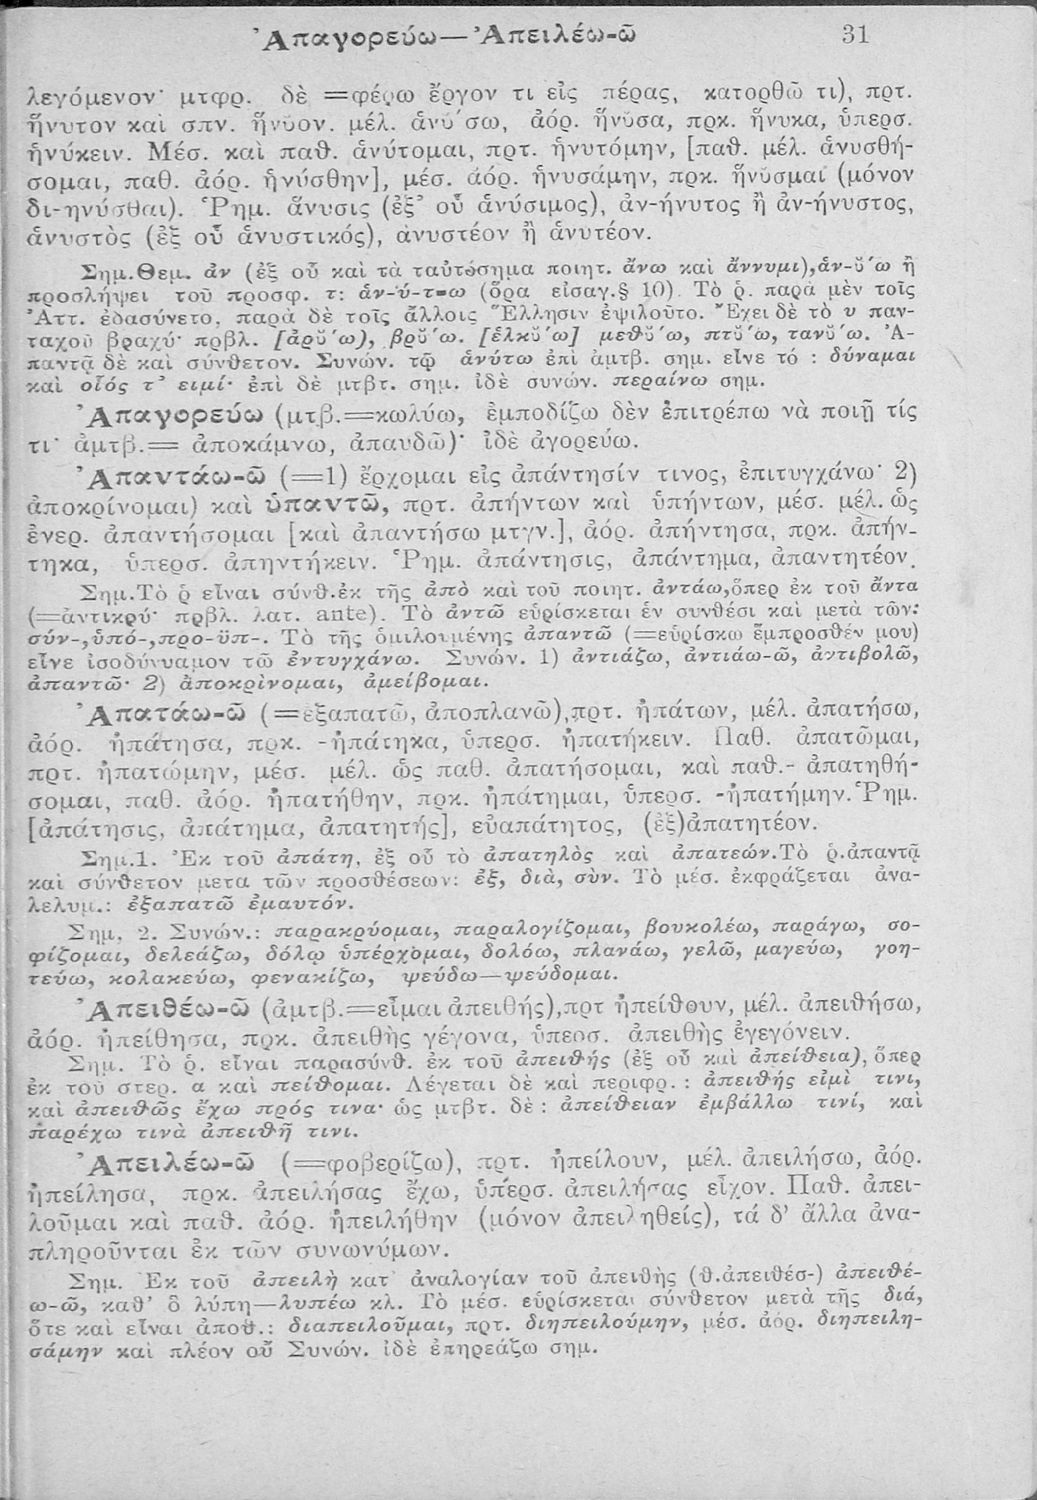 Ἀπαγορεύω—Ἀπειλέω-ῶ 31
λεγόμενον· μτφρ. δὲ =φέρω ἔργον τι εἰς πέρας, κατορθῶ τι), πρτ.
ἥνυτον καὶ σπν. ἥνυον. μέλ. ἁνύσω, ἀόρ. ἥνυσα, πρκ. ἥνυκα, ὑπερσ.
ἡνύκειν. Μέσ. καὶ παθ. ἁνύτομαι, πρτ. ἡνυτόμην, [παθ. μέλ. ἁνυσθή-
σομαι, παθ. ἀόρ. ἡνύσθην], μέσ. ἀόρ. ἡνυσάμην, πρκ. ἥνυσμαι (μόνον
δι-ηνύσθαι). Ῥημ. ἅνυσις (ἐξ' οὗ ἁνύσιμος), ἀν-ήνυτος ἢ ἀν-ήνυστος,
ἁνυστὸς (ἐξ οὗ ἁνυστικός), ἀνυστέον ἢ ἁνυτέον.
Σημ.Θεμ. ἀν (ἐξ οὗ καὶ τὰ ταὐτόσημα ποιητ. ἄνω καὶ ἄννυμι),ἁν-ύ̆ω ἢ
προσλήψει τοῦ προσφ. τ: ἁν-ύ-τ-ω (ὅρα εἰσαγ.§ 10). Τὸ ῥ. παρὰ μὲν τοῖς
Ἀττ. ἐδασύνετο, παρὰ δὲ τοῖς ἄλλοις Ἕλλησιν ἐψιλοῦτο. Ἔχει δὲ τὸ υ παν-
ταχοῦ βραχύ· πρβλ. [ἀρύ̆ω), βρύ̆ω. [ἑλκύ̆ω] μεθύ̆ω, πτύ̆ω, τανύ̆ω. Ἀ-
παντᾷ δὲ καὶ σύνθετον. Συνών. τῷ ἁνύτω ἐπὶ ἀμτβ. σημ. εἶνε τό : δύναμαι
καὶ οἷός τ' εἰμί· ἐπὶ δὲ μτβτ. σημ. ἰδὲ συνών. περαίνω σημ.
Ἀπαγορεύω (μτβ.=κωλύω, ἐμποδίζω δὲν ἐπιτρέπω νὰ ποιῇ τίς
τι· ἀμτβ.= ἀποκάμνω, ἀπαυδῶ)· ἰδὲ ἀγορεύω.
Ἀπαντάω-ῶ (=1) ἔρχομαι εἰς ἀπάντησίν τινος, ἐπιτυγχάνω· 2)
ἀποκρίνομαι) καὶ ὑπαντῶ, πρτ. ἀπήντων καὶ ὑπήντων, μέσ. μέλ. ὡς
ἐνερ. ἀπαντήσομαι [καὶ ἀπαντήσω μτγν.], ἀόρ. ἀπήντησα, πρκ. ἀπήν-
τηκα, ὑπερσ. ἀπηντήκειν. Ῥημ. ἀπάντησις, ἀπάντημα, ἀπαντητέον.
Σημ.Τὸ ῥ εἶναι σύνθ.ἐκ τῆς ἀπὸ καὶ τοῦ ποιητ. ἀντάω,ὅπερ ἐκ τοῦ ἄντα
(=ἀντικρύ· πρβλ. λατ. ante). Τὸ ἀντῶ εὑρίσκεται ἐν συνθέσι καὶ μετὰ τῶν:
σύν-,ὑπό-,προ-ϋπ-. Τὸ τῆς ὁμιλουμένης ἀπαντῶ (=εὑρίσκω ἔμπροσθέν μου)
εἶνε ἰσοδύναμον τῶ ἐντυγχάνω. Συνών. 1) ἀντιάζω, ἀντιάω-ῶ, ἀντιβολῶ,
ἀπαντῶ· 2) ἀποκρίνομαι, ἀμείβομαι.
Ἀπατάω-ῶ (=ἐξαπατῶ, ἀποπλανῶ),πρτ. ἠπάτων, μέλ. ἀπατήσω,
ἀόρ. ἠπάτησα, πρκ. -ἠπάτηκα, ὑπερσ. ἠπατήκειν. Παθ. ἀπατῶμαι,
πρτ. ἠπατώμην, μέσ. μέλ. ὡς παθ. ἀπατήσομαι, καὶ παθ.- ἀπατηθή-
σομαι, παθ. ἀόρ. ἠπατήθην, πρκ. ἠπάτημαι, ὑπερσ. -ἠπατήμην.Ῥημ.
[ἀπάτησις, ἀπάτημα, ἀπατητής], εὐαπάτητος, (ἐξ)ἀπατητέον.
Σημ.1. Ἐκ τοῦ ἀπάτη, ἐξ οὗ τὸ ἀπατηλὸς καὶ ἀπατεών.Τὸ ῥ.ἀπαντᾷ
καὶ σύνθετον μετα τῶν προσθέσεων: ἐξ, διὰ, σὺν. Τὸ μέσ. ἐκφράζεται ἀνα-
λελυμ.: ἐξαπατῶ ἐμαυτόν.
Σημ. 2. Συνών.: παρακρύομαι, παραλογίζομαι, βουκολέω, παράγω, σο-
φίζομαι, δελεάζω, δόλῳ ὑπέρχομαι, δολόω, πλανάω, γελῶ, μαγεύω, γοη-
τεύω, κολακεύω, φενακίζω, ψεύδω—ψεύδομαι.
Ἀπειθέω-ῶ (ἀμτβ.=εἶμαι ἀπειθής),πρτ ἠπείθουν, μέλ. ἀπειθήσω,
ἀόρ. ἠπείθησα, πρκ. ἀπειθὴς γέγονα, ὑπερσ. ἀπειθὴς ἐγεγόνειν.
Σημ. Τὸ ῥ. εἶναι παρασύνθ. ἐκ τοῦ ἀπειθής (ἐξ οὗ καὶ ἀπείθεια), ὅπερ
ἐκ τοῦ στερ. α καὶ πείθομαι. Λέγεται δὲ καὶ περιφρ. : ἀπειθής εἰμὶ τινι,
καὶ ἀπειθῶς ἔχω πρός τινα· ὡς μτβτ. δὲ : ἀπείθειαν ἐμβάλλω τινί, καὶ
παρέχω τινὰ ἀπειθῆ τινι.
Ἀπειλέω-ῶ (=φοβερίζω), πρτ. ἠπείλουν, μέλ. ἀπειλήσω, ἀόρ.
ἠπείλησα, πρκ. ἀπειλήσας ἔχω, ὑπερσ. ἀπειλήσας εἶχον. Παθ. ἀπει-
λοῦμαι καὶ παθ. ἀόρ. ἠπειλήθην (μόνον ἀπειληθείς), τά δ' ἄλλα ἀνα-
πληροῦνται ἐκ τῶν συνωνύμων.
Σημ. Ἐκ τοῦ ἀπειλὴ κατ' ἀναλογίαν τοῦ ἀπειθὴς (θ.ἀπειθέσ-) ἀπειθέ-
ω-ῶ, καθ' ὃ λύπη—λυπέω κλ. Τὸ μέσ. εὑρίσκεται σύνθετον μετὰ τῆς διά,
ὅτε καὶ εἶναι ἀποθ.: διαπειλοῦμαι, πρτ. διηπειλούμην, μέσ. ἀόρ. διηπειλη-
σάμην καὶ πλέον οὔ Συνών. ἰδὲ ἐπηρεάζω σημ.